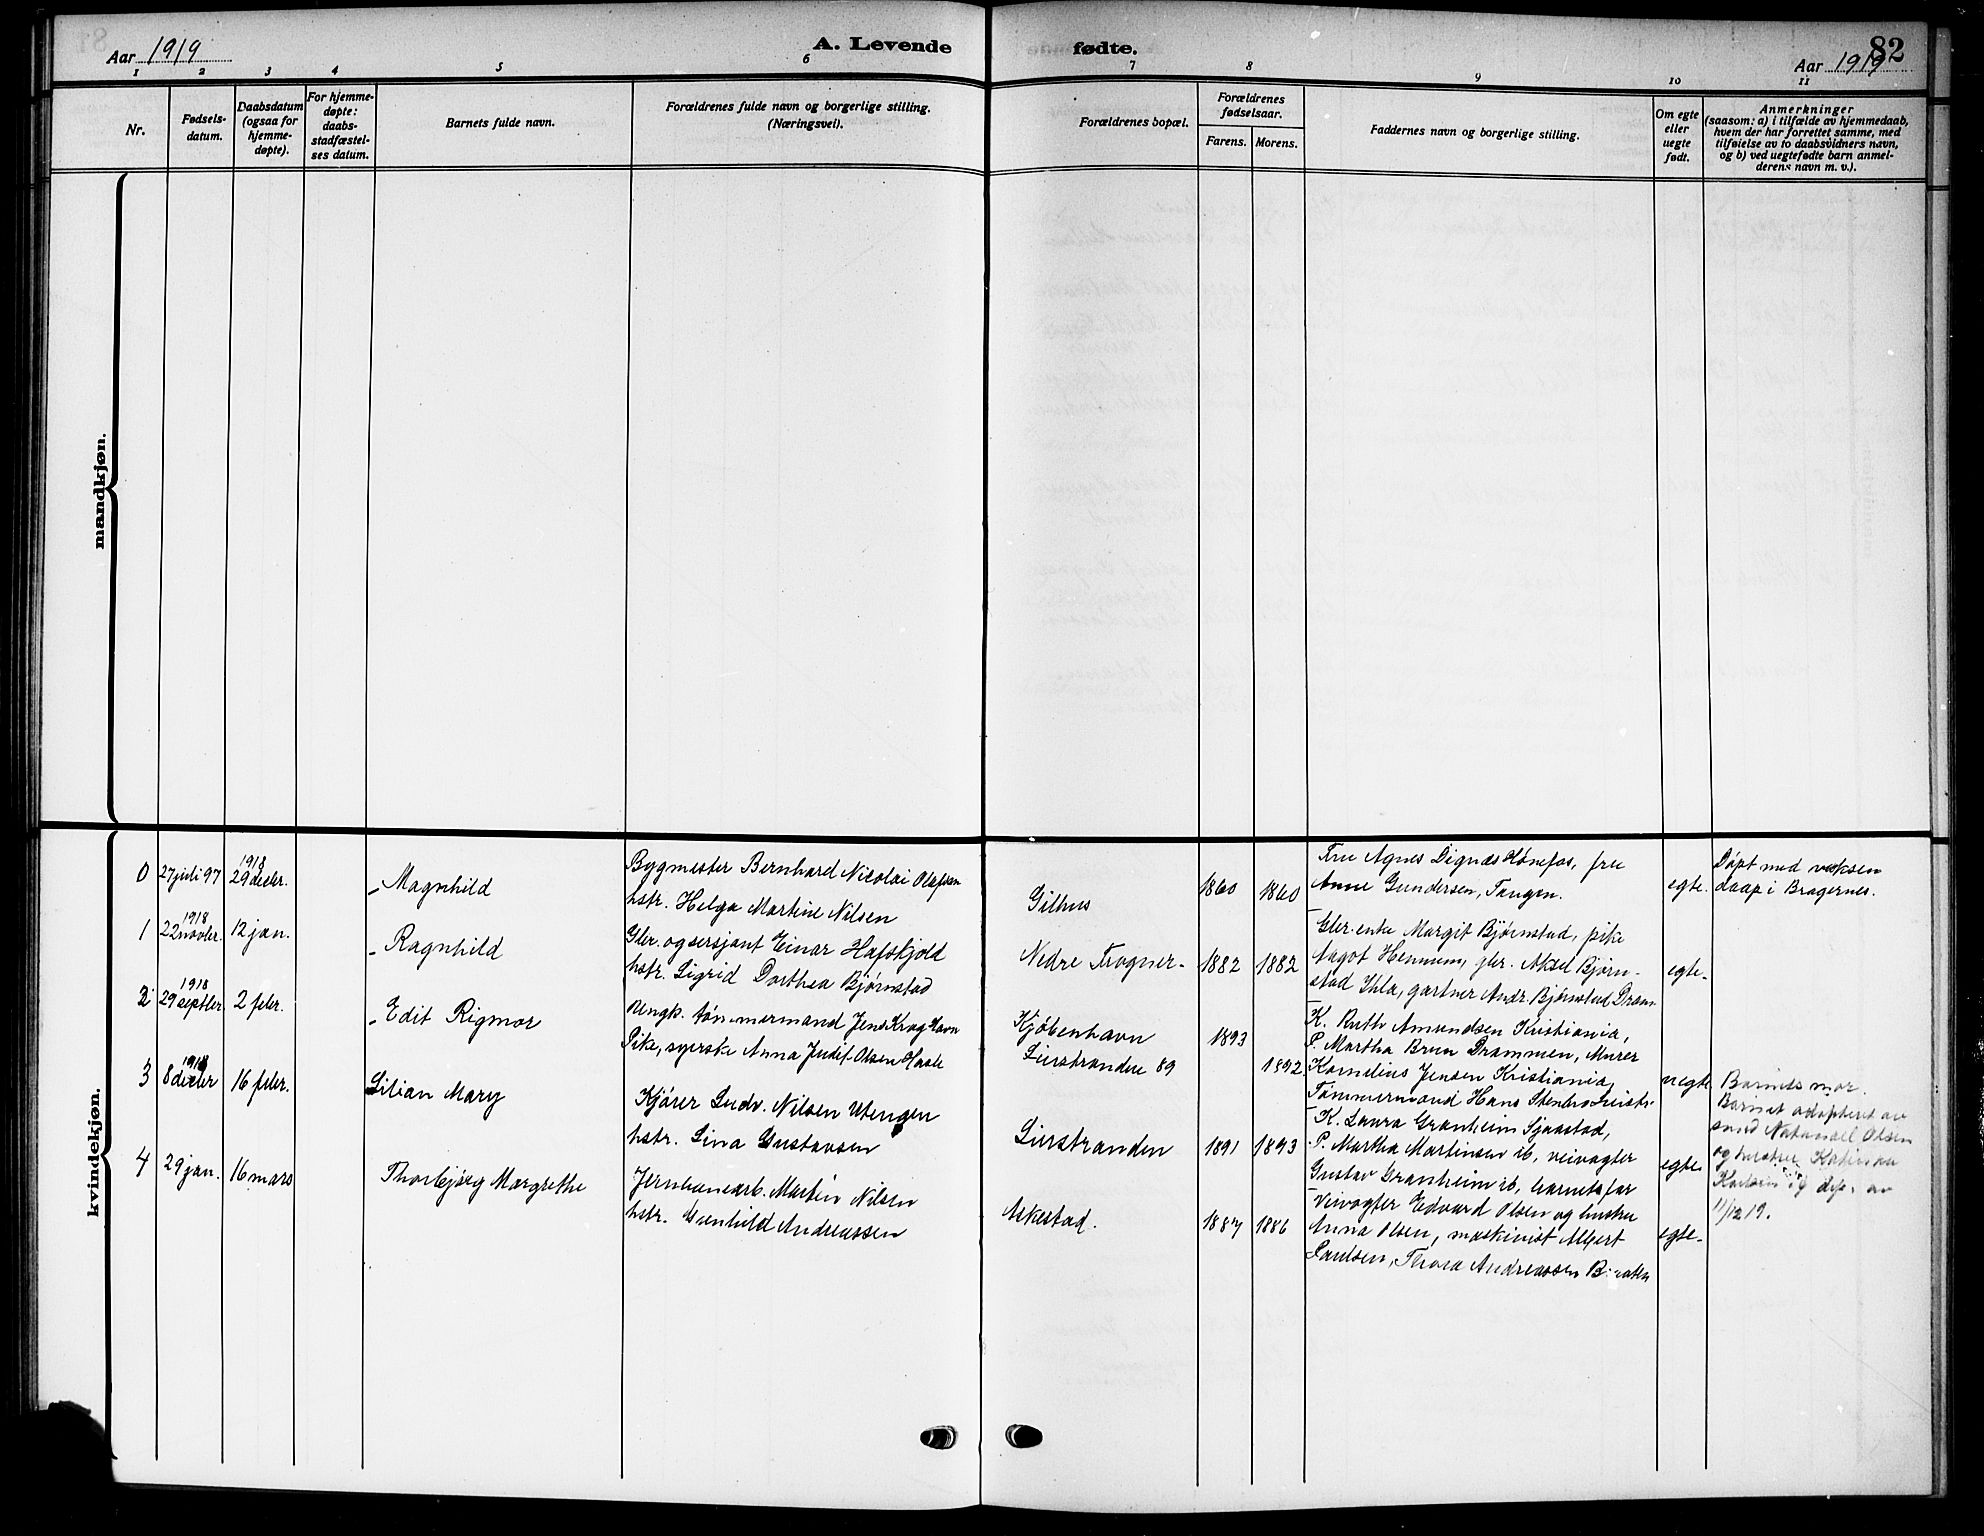 Aar 1919
A. Levende
fødte.
82
Aar 1919
1 2 3 4 5 6 7 8 9 10 11
Nr.
Fødsels-
datum.
Daabsdatum
(ogsaa for
hjemme-
døpte).
For hjemme-
døpte:
daabs-
stadfæstel-
ses datum.
Barnets fulde navn.
Forældrenes fulde navn og borgerlige stilling.
(Næringsvei).
Forældrenes bopæl.
Forældrenes
fødselsaar.
Farens. Morens.
Faddernes navn og borgerlige stilling.
Om egte
eller
uegte
født.
Anmerkninger
(saasom: a) i tilfælde av hjemmedaab,
hvem der har forrettet samme, med
tilføielse av to daabsvidners navn,
og b) ved uegtefødte barn anmel-
derens navn m. v.).
mandkjøn.
kvindekjøn.
0 27 juli 97
1918
29 decbr.
Magnhild
Bygmester Bernhard Nicolai Olafsen
hstr. Helga Martine Nilsen
Gilhus
1860 1860
Fru Agnes Dignæs Hønefos, fru
Anne Gundersen, Tangen.
egte.
Døpt med voksen
daap i Bragernes.
1
1918
22 novbr. 12 jan.
Ragnhild
Gbr. og sersjant Einar Hafskjold
hstr. Sigrid Dorthea Bjørnstad
Nedre Frogner
1882 1882
Gbr. enke Margit Bjørnstad, pike
Aagot Hennum, gbr. Aksel Bjørn-
stad Ihla, gartner Andr. Bjørnstad Dram
egte
2
1918
29 septbr 2 febr.
Edit Rigmor
Ungk. tømmermand Jens Krog Havn
Pike, syerske Anna Judit Olsen Hasle
Kjøbenhavn
Lierstranden 89
1893
1892
K. Ruth Amundsen Kristiania,
P. Martha Brun Drammen, Murer
Kornelius Jensen Kristiania,
Tømmermand Hans
uegte
Barnets mor.
Barnet adopteret av
Natanael Olsen
og hustru
11/12 19.
3
1918
8 decbr 16 febr.
Lilian Mary
Kjører Ludv. Nilsen Utengen
hstr. Lina Gustavsen
Lierstranden
1891 1893
K. Laura Granheim Sjaastad,
P. Martha Martinsen ib, veivogter
Gustav Granheim ib, barnets far
egte
4 29 jan. 16 mars
Thorbjørg Margrethe
Jernbanearb. Martin Nilsen
hstr. Gunhild Andreassen
Askestad.
1887 1886
Veivogter Edvard Olsen og hustru
Anna Olsen, maskinist Albert
Paulsen, Thora Andreassen
egte